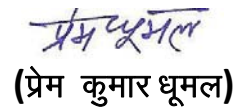 प्रेम धूमल
(प्रेम कुमार धूमल)